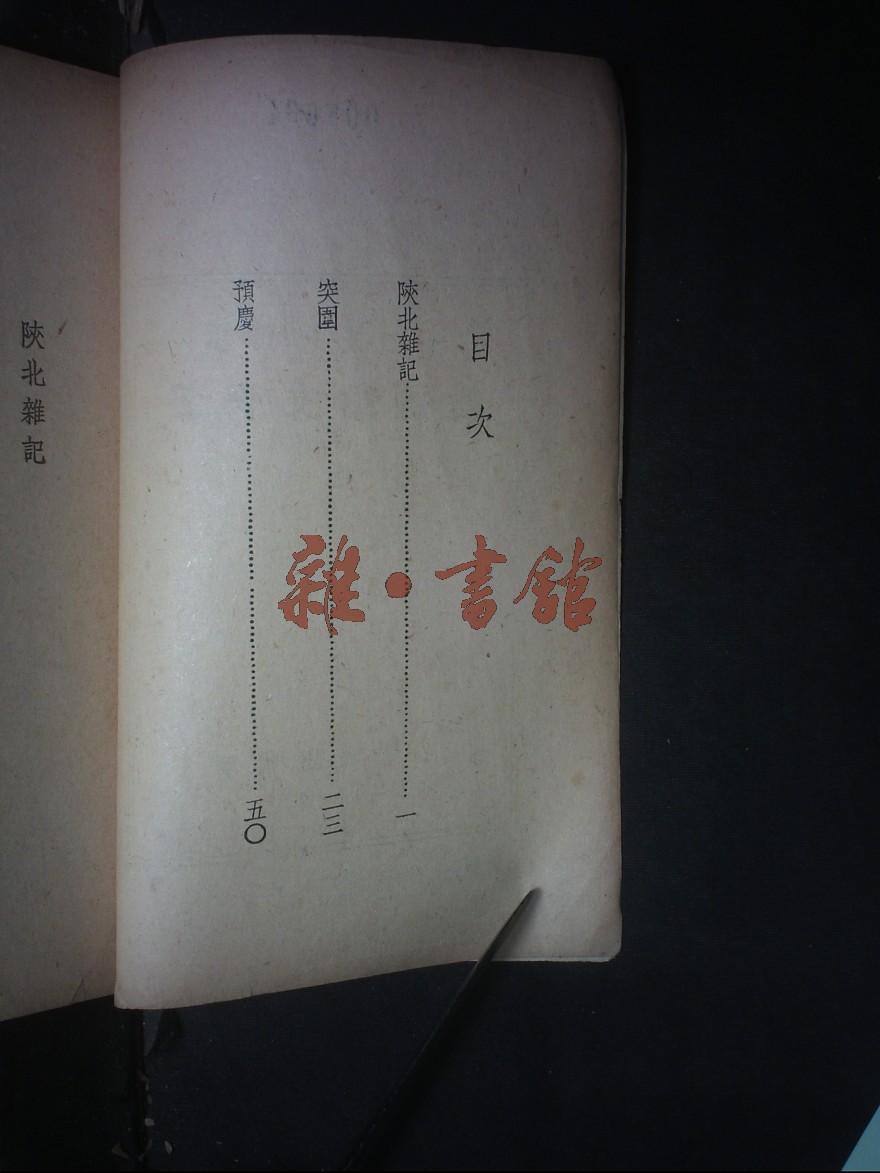 目次
陝北雜記 一
突圍 二三
預慶 五〇
陝北雜記
雜·書館